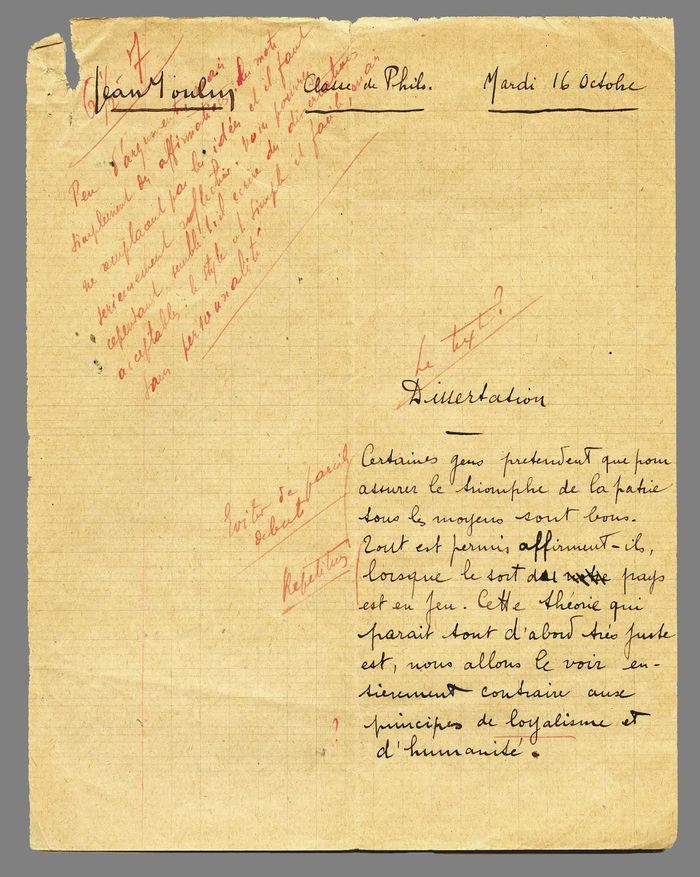 6 1/2 7
Jean Moulin Classe de Philo. Mardi 16 Octobre
Peu d'arguments mais
simplement des affirmations. Les mots
ne remplacent pas les idées et il faut
sérieusement réfléchir. Vous pouvez
cependant, semble-t-il, écrire des dissertations
acceptables : le style est simple et facile, mais
sans personnalité
Le texte ?
Dissertation
Certaines gens pretendent que pour
assurer le triomphe de la patrie
tous les moyens sont bons.
Tout est permis affirment-ils,
lorsque le sort du pays
est en jeu. Cette théorie qui
parait tout d'abord très juste
est, nous allons le voir en-
tièrement contraire aux
principes de loyalisme et
d'humanité.
Eviter de pareils
debuts
Repetition
?